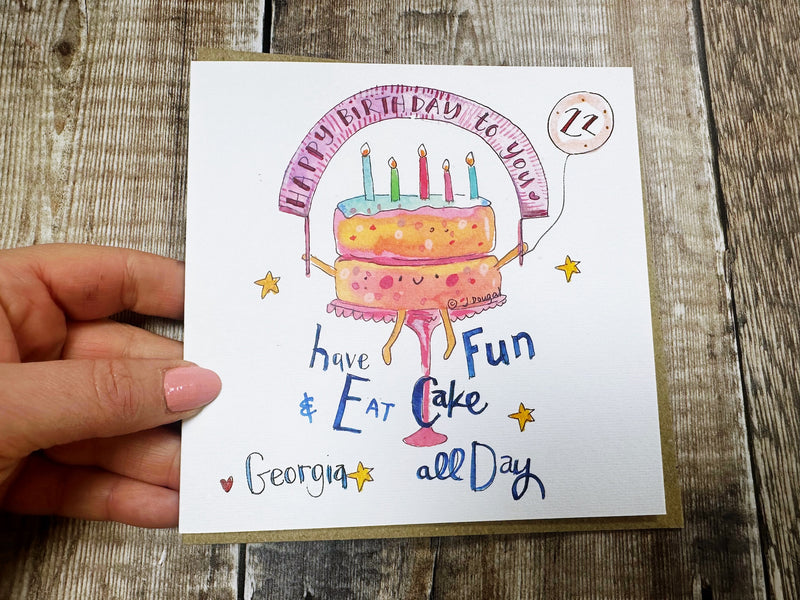 HAPPY BIRTHDAY to YOU
22
© J Dougal
have Fun
& EAT Cake
Georgia all Day